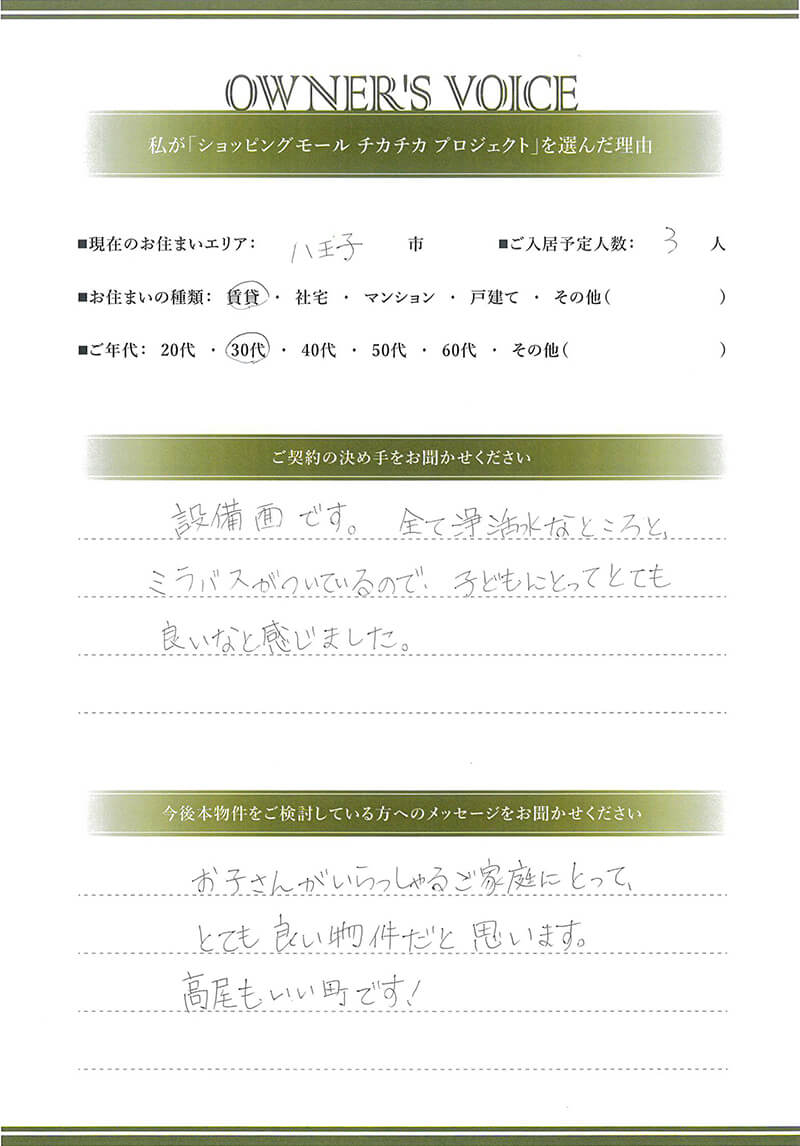 OWNER'S VOICE
私が「ショッピングモール チカチカ プロジェクト」を選んだ理由
■現在のお住まいエリア： 八王子 市 ■ご入居予定人数： 3 人
■お住まいの種類： 賃貸 ・ 社宅 ・ マンション ・ 戸建て ・ その他（ ）
■ご年代： 20代 ・ 30代 ・ 40代 ・ 50代 ・ 60代 ・ その他（ ）
ご契約の決め手をお聞かせください
設備面です。 全て浄活水なところと、
ミラバスがついているので、子どもにとってとても
良いなと感じました。
今後本物件をご検討している方へのメッセージをお聞かせください
お子さんがいらっしゃるご家庭にとって、
とても良い物件だと思います。
高尾もいい町です!